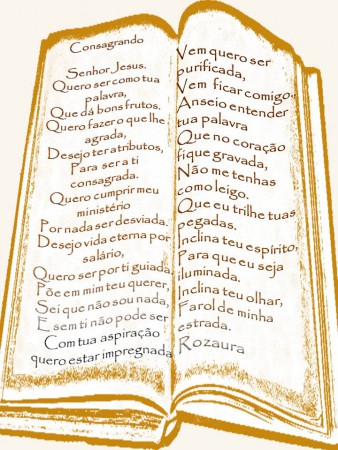 Consagrando
Senhor Jesus.
Quero ser como tua
palavra,
Que dá bons frutos.
Quero fazer o que lhe
agrada,
Desejo ter atributos,
Para ser a ti
consagrada.
Quero cumprir meu
ministério
Por nada ser desviada.
Desejo vida eterna por
salário,
Quero ser por ti guiada
Põe em mim teu querer,
Sei que não sou nada,
E sem ti não pode ser
Com tua aspiração
quero estar impregnada
Vem quero ser
purificada,
Vem ficar comigo.
Anseio entender
tua palavra
Que no coração
fique gravada,
Não me tenhas
como leigo.
Que eu trilhe tuas
pegadas.
Inclina teu espírito,
Para que eu seja
iluminada.
Inclina teu olhar,
Farol de minha
estrada.
Rozaura